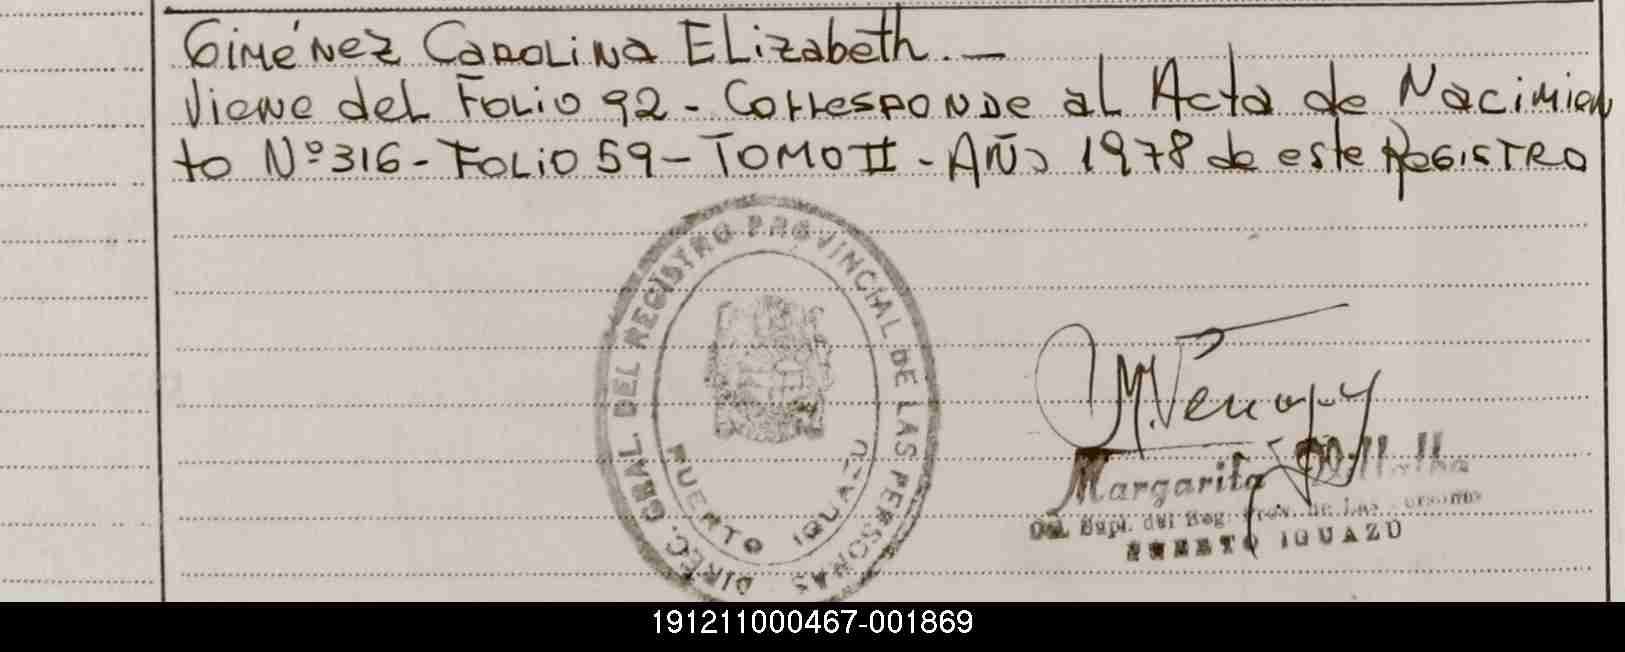 Giménez Carolina Elizabeth. —
Viene del Folio 92 - Corresponde al Acta de Nacimien
to Nº 316 - Folio 59 - TOMO II - AÑO 1978 de este REGISTRO
DIREC. GRAL. DEL REGISTRO PROVINCIAL DE LAS PERSONAS
PUERTO IGUAZU
Margarita
Del. Supl. del Reg. Prov. de Las Personas
PUERTO IGUAZU
191211000467-001869